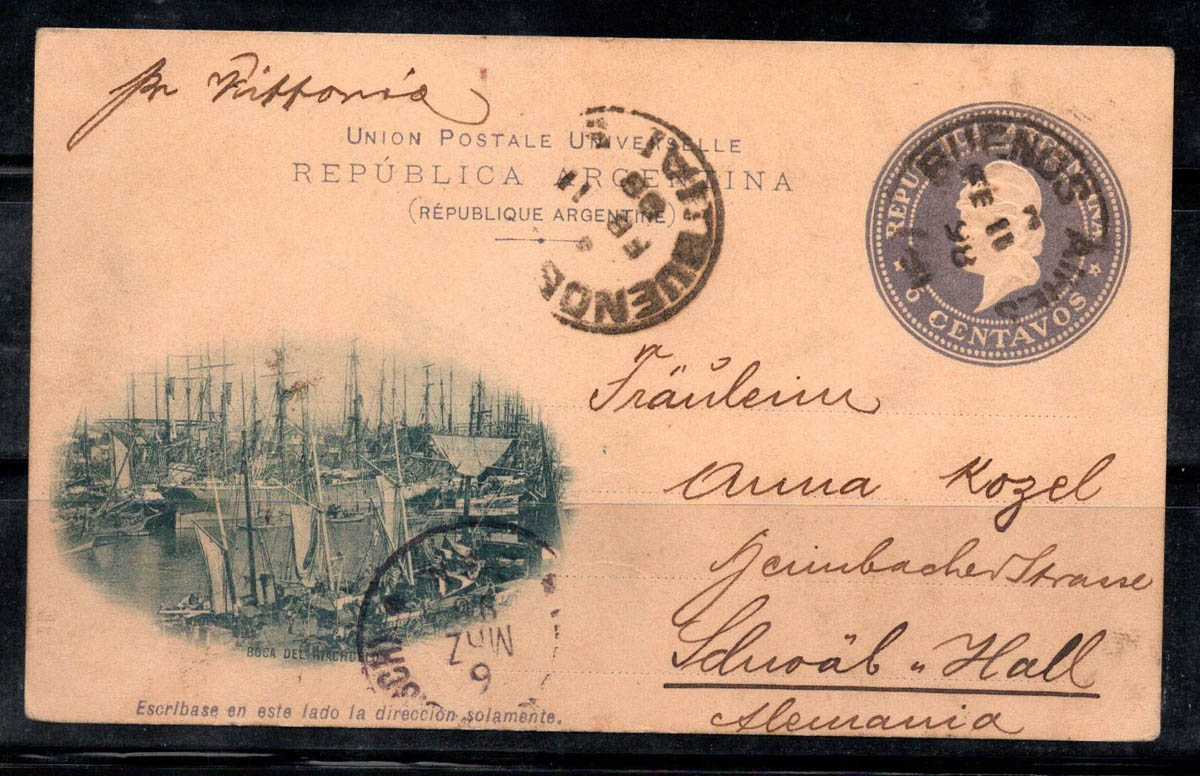 pr Vittoria
UNION POSTALE UNIVERSELLE
REPÚBLICA ARGENTINA
(RÉPUBLIQUE ARGENTINE)
BUENOS AI
FB
11
98
BUENOS AIRES
FE 11
98
REPUB NA
6 CENTAVOS
Fräulein
Anna Kozel
Heimbacher Strasse
Schwäb. Hall
Alemania
BOCA DEL RIACHUELO
6
MRZ
98
Escríbase en este lado la dirección solamente.